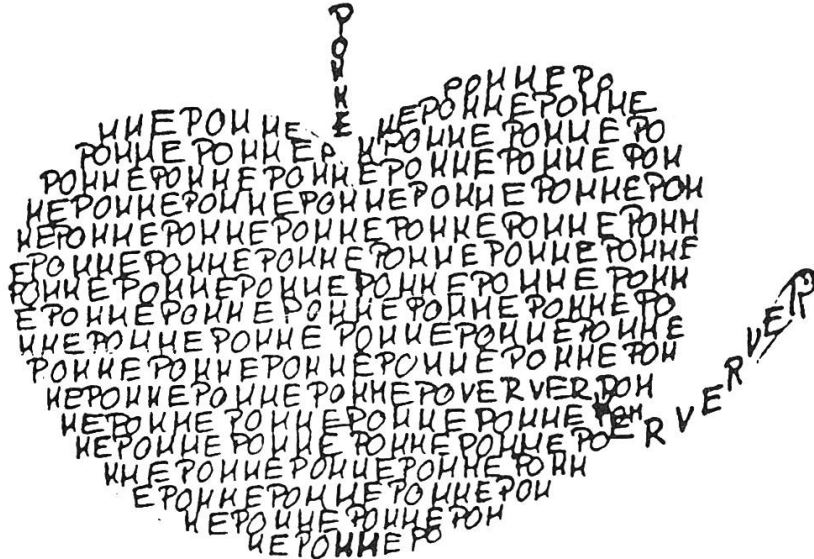 POMME
POMMEPO
MMEPOMME MEPOMMEPOMME
POMMEPOMMEP MPOMMEPOMMEPO
POMMEPOMMEPOMMEPOMMEPOMMEPOM
MEPOMMEPOMMEPOMMEPOMMEPOMMEPOM
MEPOMMEPOMMEPOMMEPOMMEPOMMEPOMM
EPOMMEPOMMEPOMMEPOMMEPOMMEPOMME
POMMEPOMMEPOMMEPOMMEPOMMEPOMM
EPOMMEPOMMEPOMMEPOMMEPOMMEPO
MMEPOMMEPOMMEPOMMEPOMMEPOMME
POMMEPOMMEPOMMEPOMMEPOMMEPOM
MEPOMMEPOMMEPOMMEPOVERVERPOM
MEPOMMEPOMMEPOMMEPOMMEPOM
MEPOMMEPOMMEPOMMEPOMMEPO
MMEPOMMEPOMMEPOMMEPOMM
EPOMMEPOMMEPOMMEPOM
MEPOMMEPOMMEPOM
MEPOMMEPO
VERVERVER